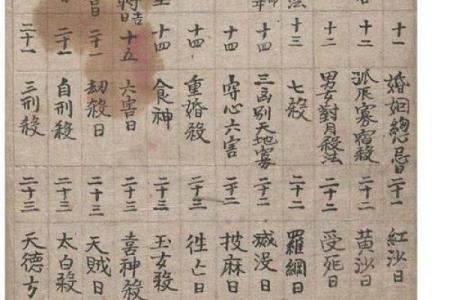 十一 婚姻總忌日 二十一 紅沙日
十二 孤辰寡宿殺 二十二 黄沙日
十二 男女對月殺法 二十二 受死日
法 十三 七殺 二十二 羅網日
十四 別天地寡 二十二 滅没日
十四 穿心六害 二十二 披麻日
十四 重婚殺 二十三 徃亡日
十四 食神 二十三 玉女殺
日 十五 六害日 二十三 喜神殺
二十一 劫殺日 二十三 天賊日
二十一 自刑殺 二十三 太白殺
二十一 三刑殺 二十三 天德方